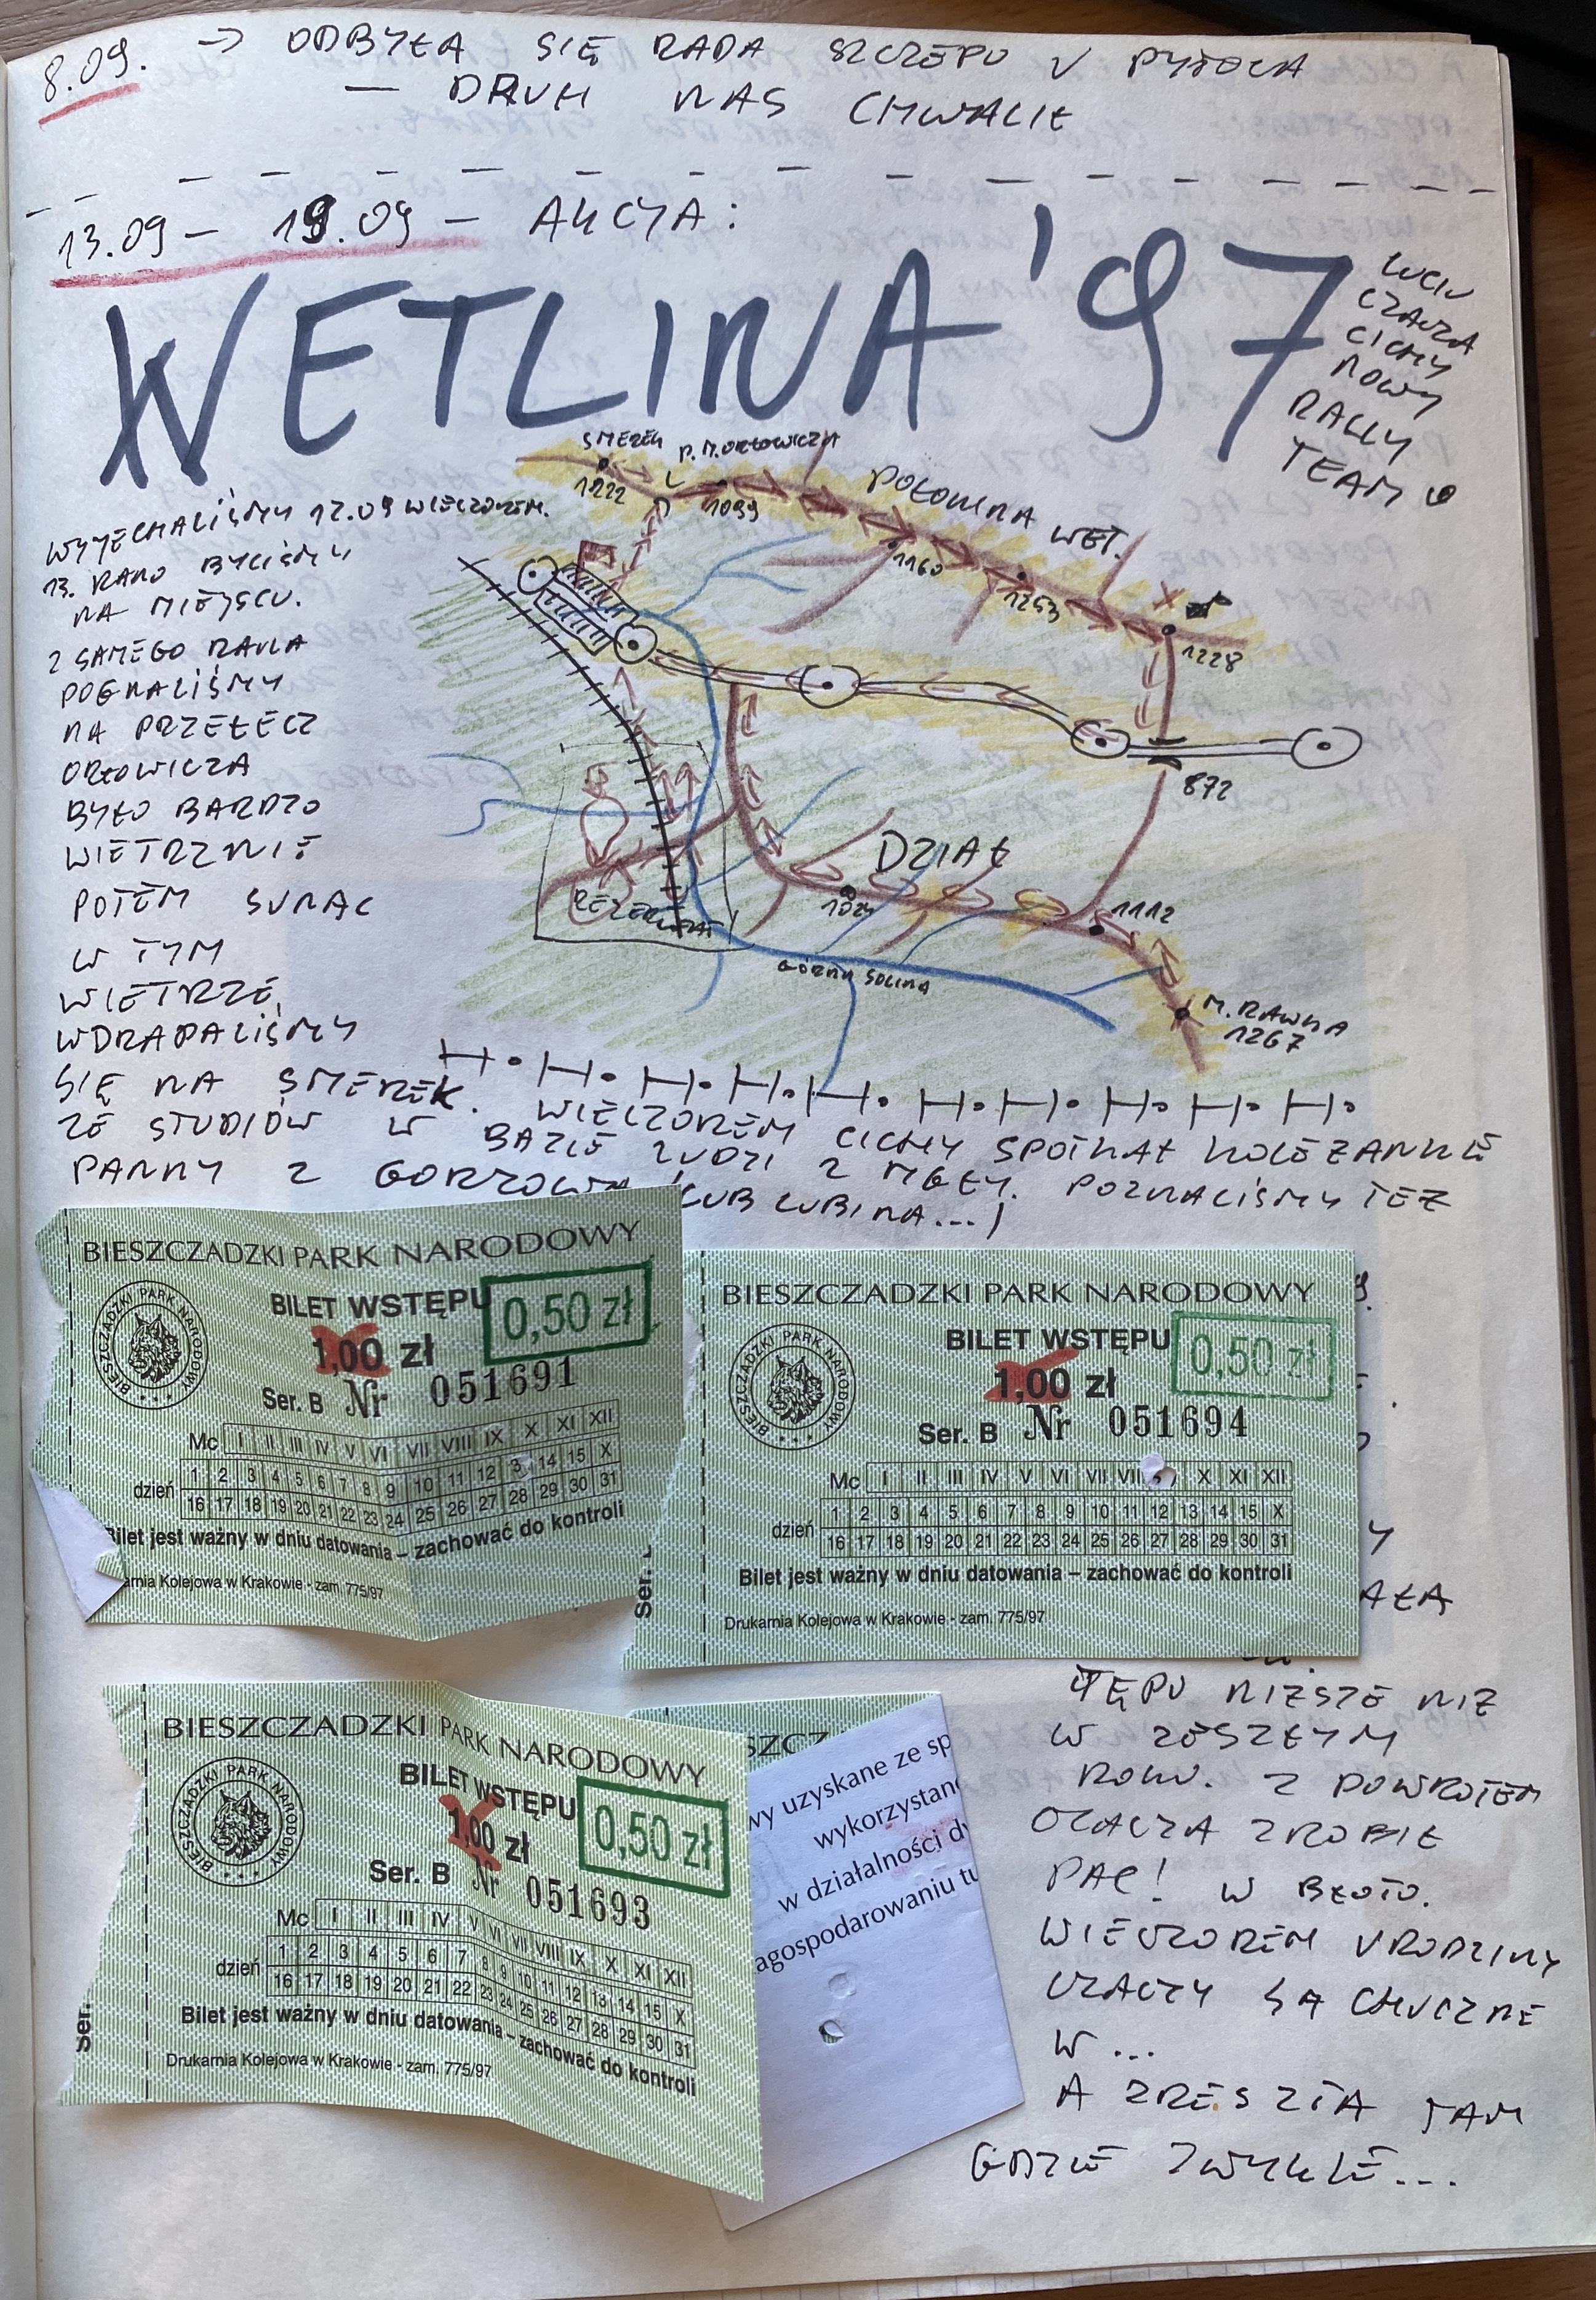 8.09. → ODBYŁA SIĘ RADA SZCZEPU U PYTOCA
— DRUH NAS CHWALIŁ
13.09 – 19.09 – AKCJA:
WETLINA '97
LUCIU
CZACZA
CICHY
NOWY
RALLY
TEAM
SMEREK
1222
P. M. ORŁOWICZA
1099
POŁONINA WET.
1160
1253
1228
872
DZIAŁ
1024
1112
M. RAWKA
1267
GÓRNA SOLINA
REZERWAT
WYJECHALIŚMY 12.09 WIECZOREM.
13. RANO BYLIŚMY
NA MIEJSCU.
Z SAMEGO RANA
POGNALIŚMY
NA PRZEŁĘCZ
ORŁOWICZA
BYŁO BARDZO
WIETRZNIE
POTEM SUNĄC
W TYM
WIETRZE,
WDRAPALIŚMY
SIĘ NA SMEREK. WIECZOREM CICHY SPOTKAŁ KOLEŻANKĘ
ZE STUDIÓW W BAZIE LUDZI Z MGŁY. POZNALIŚMY TEŻ
PANNY Z GORZOWA (LUB LUBINA...)
BIESZCZADZKI PARK NARODOWY
BIESZCZADZKI PARK NARODOWY
BILET WSTĘPU
0,50 zł
1,00 zł
Ser. B Nr 051691
Mc I II III IV V VI VII VIII IX X XI XII
dzień
1 2 3 4 5 6 7 8 9 10 11 12 14 15 X
16 17 18 19 20 21 22 23 24 25 26 27 28 29 30 31
Bilet jest ważny w dniu datowania – zachować do kontroli
arnia Kolejowa w Krakowie - zam. 775/97
BIESZCZADZKI PARK NARODOWY
BIESZCZADZKI PARK NARODOWY
BILET WSTĘPU
0,50 zł
1,00 zł
Ser. B Nr 051694
Mc I II III IV V VI VII X XI XII
dzień
1 2 3 4 5 6 7 8 9 10 11 12 13 14 15 X
16 17 18 19 20 21 22 23 24 25 26 27 28 29 30 31
Bilet jest ważny w dniu datowania – zachować do kontroli
Drukarnia Kolejowa w Krakowie - zam. 775/97
Ser.
AŁA
TĘPU NIŻSZE NIŻ
W ZESZŁYM
ROKU. Z POWROTEM
CZACZA ZROBIŁ
PAC! W BŁOTO.
WIECZOREM URODZINY
CZACZY SĄ CHUCZNE
W...
A ZRESZTA TAM
GDZIE ZWYKLE...
BIESZCZADZKI PARK NARODOWY
BIESZCZADZKI PARK NARODOWY
BILET WSTĘPU
0,50 zł
1,00 zł
Ser. B Nr 051693
Mc I II III IV V VI VII VIII IX X XI XII
dzień
1 2 3 4 5 6 7 8 9 10 11 12 13 14 15 X
16 17 18 19 20 21 22 23 24 25 26 27 28 29 30 31
Bilet jest ważny w dniu datowania – zachować do kontroli
Drukarnia Kolejowa w Krakowie - zam. 775/97
Ser.
SZCZ
wy uzyskane ze sp
wykorzystan
w działalności dy
agospodarowaniu tu